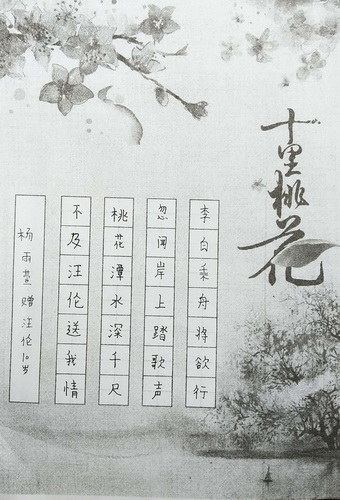 十里桃花
李白乘舟将欲行
忽闻岸上踏歌声
桃花潭水深千尺
不及汪伦送我情
杨雨萱 赠汪伦 10岁